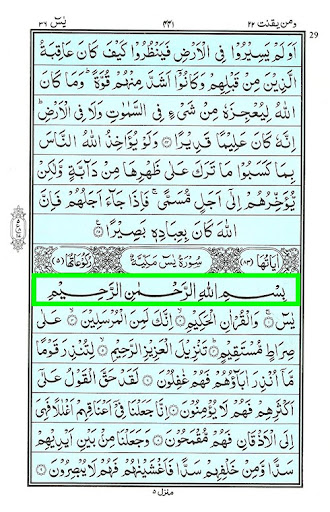 ومن يقنت ٢٢ ٤٤١ يٰسٓ ٣٦
29
اَوَلَمْ يَسِيْرُوْا فِى الْاَرْضِ فَيَنْظُرُوْا كَيْفَ كَانَ عَاقِبَةُ
الَّذِيْنَ مِنْ قَبْلِهِمْ وَكَانُوْٓا اَشَدَّ مِنْهُمْ قُوَّةً ؕ وَمَا كَانَ
اللّٰهُ لِيُعْجِزَهٗ مِنْ شَىْءٍ فِى السَّمٰوٰتِ وَلَا فِى الْاَرْضِ ؕ
اِنَّهٗ كَانَ عَلِيْمًا قَدِيْرًا ۝ وَلَوْ يُؤَاخِذُ اللّٰهُ النَّاسَ
بِمَا كَسَبُوْا مَا تَرَكَ عَلٰى ظَهْرِهَا مِنْ دَآبَّةٍ وَّلٰكِنْ
يُّؤَخِّرُهُمْ اِلٰٓى اَجَلٍ مُّسَمًّى ۚ فَاِذَا جَآءَ اَجَلُهُمْ فَاِنَّ
اللّٰهَ كَانَ بِعِبَادِهٖ بَصِيْرًا ۝
اٰيَاتُهَا (٨٣) سُوْرَةُ يٰسٓ مَكِّيَّةٌ رُكُوْعَاتُهَا (٥)
بِسْمِ اللّٰهِ الرَّحْمٰنِ الرَّحِيْمِ
يٰسٓ ۝ وَالْقُرْاٰنِ الْحَكِيْمِ ۝ اِنَّكَ لَمِنَ الْمُرْسَلِيْنَ ۝ عَلٰى
صِرَاطٍ مُّسْتَقِيْمٍ ۝ تَنْزِيْلَ الْعَزِيْزِ الرَّحِيْمِ ۝ لِتُنْذِرَ قَوْمًا
مَّآ اُنْذِرَ اٰبَآؤُهُمْ فَهُمْ غٰفِلُوْنَ ۝ لَقَدْ حَقَّ الْقَوْلُ عَلٰٓى
اَكْثَرِهِمْ فَهُمْ لَا يُؤْمِنُوْنَ ۝ اِنَّا جَعَلْنَا فِىْٓ اَعْنَاقِهِمْ اَغْلٰلًا فَهِىَ
اِلَى الْاَذْقَانِ فَهُمْ مُّقْمَحُوْنَ ۝ وَجَعَلْنَا مِنْۢ بَيْنِ اَيْدِيْهِمْ
سَدًّا وَّمِنْ خَلْفِهِمْ سَدًّا فَاَغْشَيْنٰهُمْ فَهُمْ لَا يُبْصِرُوْنَ ۝
منزل ٥